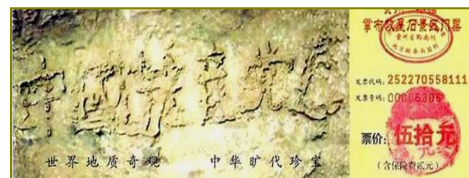 中国共产党
世界地质奇观 中华旷代珍宝
掌布藏字石景区门票
发票代码: 252270558111
发票号码: 00006306
票价: 伍拾元
(含保险费贰元)